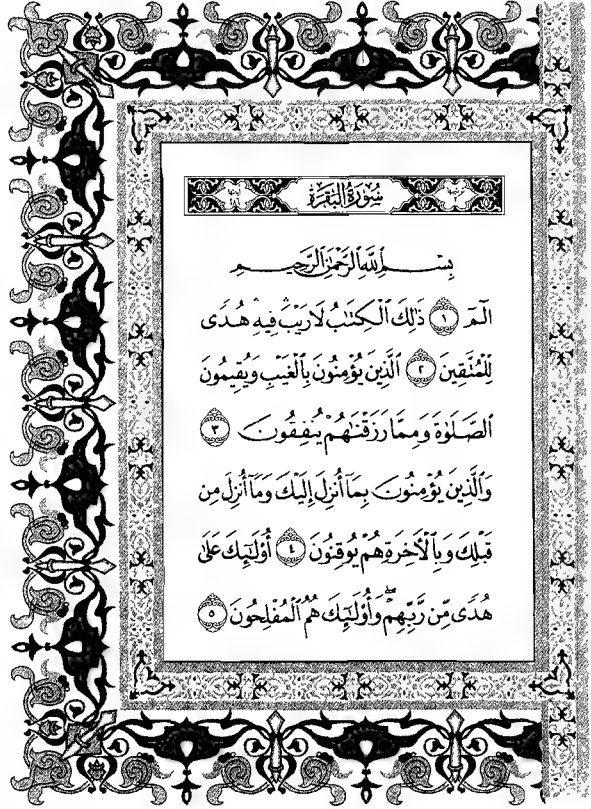 سُورَةُ البَقَرَةِ
بِسۡمِ ٱللَّهِ ٱلرَّحۡمَٰنِ ٱلرَّحِيمِ
الٓمٓ ١ ذَٰلِكَ ٱلۡكِتَٰبُ لَا رَيۡبَۛ فِيهِۛ هُدٗى
لِّلۡمُتَّقِينَ ٢ ٱلَّذِينَ يُؤۡمِنُونَ بِٱلۡغَيۡبِ وَيُقِيمُونَ
ٱلصَّلَوٰةَ وَمِمَّا رَزَقۡنَٰهُمۡ يُنفِقُونَ ٣
وَٱلَّذِينَ يُؤۡمِنُونَ بِمَآ أُنزِلَ إِلَيۡكَ وَمَآ أُنزِلَ مِن
قَبۡلِكَ وَبِٱلۡأٓخِرَةِ هُمۡ يُوقِنُونَ ٤ أُوْلَٰٓئِكَ عَلَىٰ
هُدٗى مِّن رَّبِّهِمۡۖ وَأُوْلَٰٓئِكَ هُمُ ٱلۡمُفۡلِحُونَ ٥